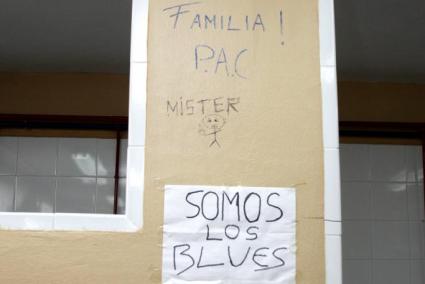 FAMILIA !
P.A.C
MISTER
SOMOS
LOS
BLUES